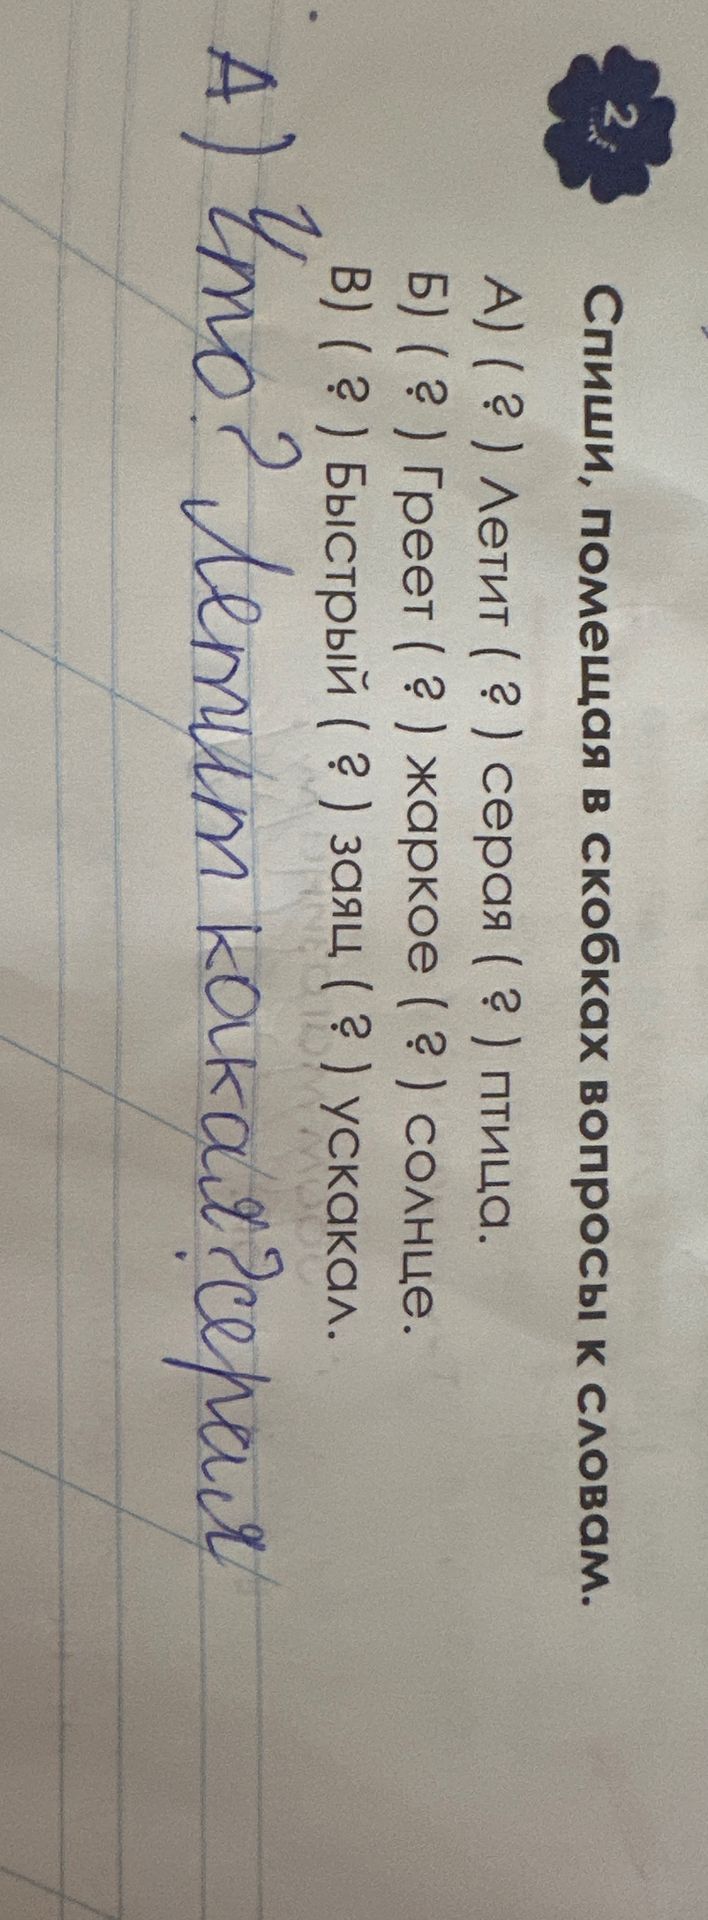 2
Спиши, помещая в скобках вопросы к словам.
А) ( ? ) Летит ( ? ) серая ( ? ) птица.
Б) ( ? ) Греет ( ? ) жаркое ( ? ) солнце.
В) ( ? ) Быстрый ( ? ) заяц ( ? ) ускакал.
А) Что? Летит какая? серая